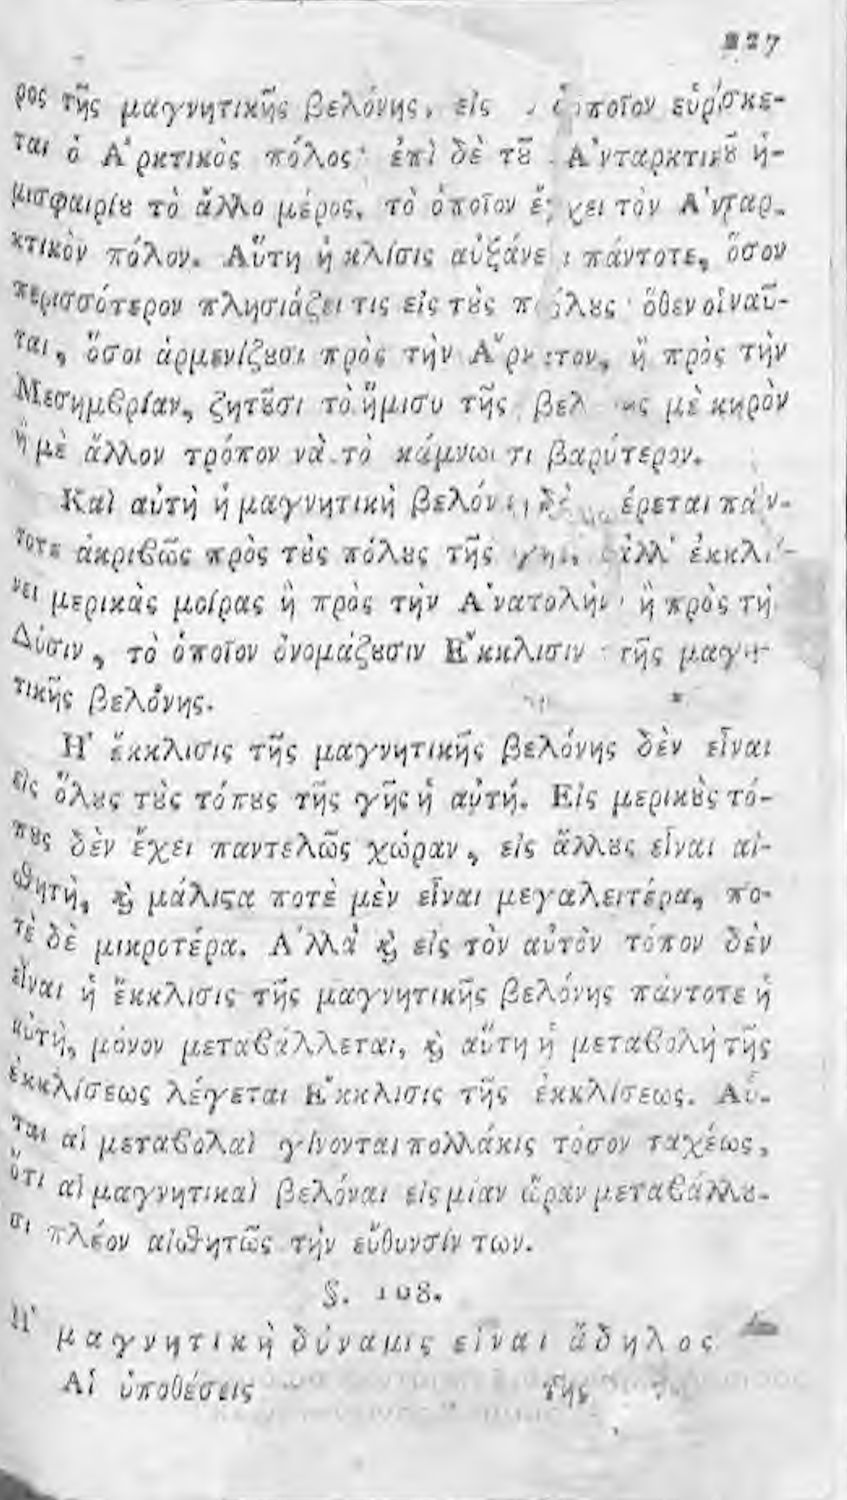 227
ρος τῆς μαγνητικῆς βελόνης, εἰς ὁποῖον εὑρίσκε-
ται ὁ Ἀρκτικὸς πόλος· ἐπὶ δὲ τȣ͂ Ἀνταρκτικȣ͂ ἡ-
μισφαιρίȣ τὸ ἄλλο μέρος, τὸ ὁποῖον ἔχει τὸν Ἀνταρ-
κτικὸν πόλον. Αὕτη ἡ κλίσις αὐξάνει πάντοτε, ὅσον
περισσότερον πλησιάζει τις εἰς τȣ̀ς πόλȣς· ὅθεν οἱ ναῦ-
ται, ὅσοι ἀρμενίζȣσι πρὸς τὴν Ἄρκτον, ἢ πρὸς τὴν
Μεσημβρίαν, ζητȣ͂σι τὸ ἥμισυ τῆς βελόνης μὲ κηρὸν
ἢ μὲ ἄλλον τρόπον νὰ τὸ κάμνωσι τι βαρύτερον.
Καὶ αὐτὴ ἡ μαγνητικὴ βελόνη δὲν φέρεται πάν-
τοτε ἀκριβῶς πρὸς τȣ̀ς πόλȣς τῆς γῆς, ἀλλ' ἐκκλί-
νει μερικὰς μοίρας ἢ πρὸς τὴν Ἀνατολὴν ἢ πρὸς τὴ
Δύσιν, τὸ ὁποῖον ὀνομάζȣσιν Ἔκκλισιν τῆς μαγνη-
τικῆς βελόνης.
Ἡ ἔκκλισις τῆς μαγνητικῆς βελόνης δὲν εἶναι
εἰς ὅλȣς τȣ̀ς τόπȣς τῆς γῆς ἡ αὐτή. Εἰς μερικȣ̀ς τό-
πȣς δὲν ἔχει παντελῶς χώραν, εἰς ἄλλȣς εἶναι αἰ-
ϑητὴ, ϗ μάλιϛα ποτὲ μὲν εἶναι μεγαλειτέρα, πο-
τὲ δὲ μικροτέρα. Ἀλλὰ ϗ εἰς τὸν αὐτὸν τόπον δὲν
εἶναι ἡ ἔκκλισις τῆς μαγνητικῆς βελόνης πάντοτε ἡ
αὐτὴ, μόνον μεταβάλλεται, ϗ αὕτη ἡ μεταβολὴ τῆς
ἐκκλίσεως λέγεται Ἔκκλισις τῆς ἐκκλίσεως. Αὗ-
ται αἱ μεταβολαὶ γίνονται πολλάκις τόσον ταχέως,
ὅτι αἱ μαγνητικαὶ βελόναι εἰς μίαν ὥραν μεταβάλλȣ-
σι πλέον αἰσϑητῶς τὴν εὔθυνσίν των.
§. 108.
Ἡ μαγνητικὴ δύναμις εἶναι ἄδηλος
Αἱ ὑποθέσεις τῆς